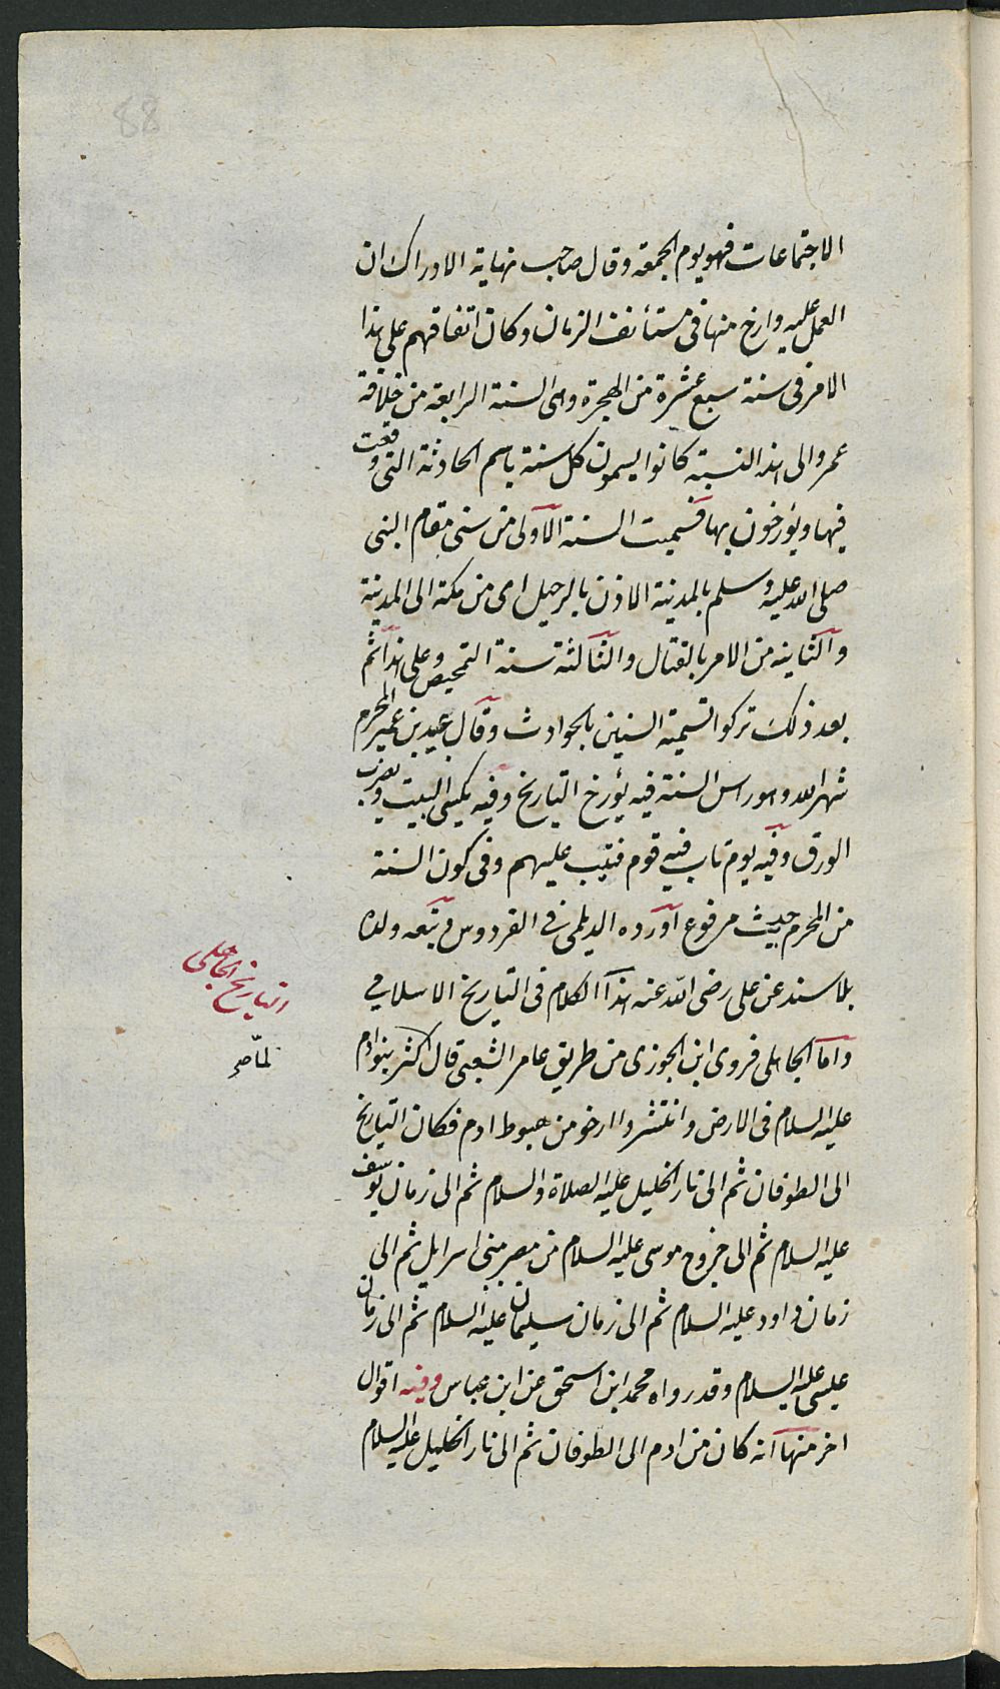 88
الاجتماعات فهو يوم الجمعة وقال صاحب نهاية الادراك ان
العمل عليه وارخ منها فى مستأنف الزمان وكان اتفاقهم على هذا
الامر فى سنة سبع عشرة من الهجرة وهى السنة الرابعة من خلافة
عمر والى هذه النسبة كانوا يسمون كل سنة باسم الحادثة التى وقعت
فيها ويؤرخون بها فسميت السنة الاولى من سنى مقام النبى
صلى الله عليه وسلم بالمدينة الاذن بالرحيل اى من مكة الى المدينة
والثانية من الامر بالقتال والثالثة سنة التمحيص وعلى هذا ثم
بعد ذلك تركوا تسمية السنين بالحوادث وقال عبيد بن عمير المحرم
شهر الله وهو راس السنة فيه يؤرخ التاريخ وفيه يكسى البيت ويضرب
الورق وفيه يوم تاب فيه قوم فتيب عليهم وفى كون السنة
من المحرم حديث مرفوع اورده الديلمى فى الفردوس وتبعه ولده
بلا سند عن على رضى الله عنه هذا الكلام فى التاريخ الاسلامى
واما الجاهلى فروى ابن الجوزى من طريق عامر الشعبى قال اكثر بنو ادم
عليه السلام فى الارض وانتشروا ارخو من هبوط ادم فكان التاريخ
الى الطوفان ثم الى نار الخليل عليه الصلاة والسلام ثم الى زمان يوسف
عليه السلام ثم الى خروج موسى عليه السلام من مصر ببنى اسرايل ثم الى
زمان داود عليه السلام ثم الى زمان سليمان عليه السلام ثم الى زمان
عيسى عليه السلام وقد رواه محمد ابن اسحق عن ابن عباس وفيه اقوال
اخر منها انه كان من ادم الى الطوفان ثم الى نار الخليل عليه السلام
التاريخ الجاهلى
لما صح